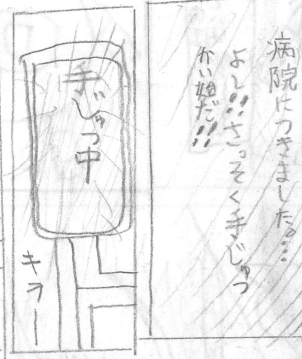 病院につきました。…
よし!!さっそく手じゅつ
かい始だ!!
手じゅつ中
キラー